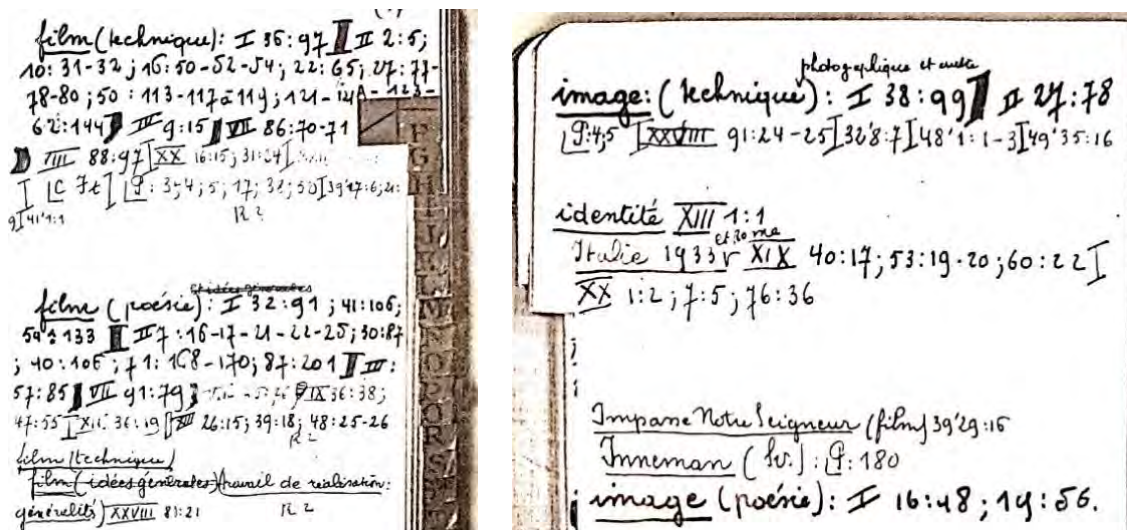 film (technique): I 36:97 II 2:5;
10: 31-32; 16:50-52-54; 22:65; 27:77-
78-80; 50: 113-117 à 119; 121-
62:144 III 9:15 VII 86:70-71
VIII 88:97 XX 16:15; 31:24
3; 4; 5; 17; 38; 50
R 2
41'1:1
F
G
H
I
J
K
L
M
N
O
P
Q
R
S
film (poésie): I 32:91; 41:106;
59:133 II 7:16-17-21-22-25; 30:87
; 40:106; 71: 168-170; 87:201 III:
57:85 VII 91:79 IX 36:38;
47:55 XII 36:19 XIII 26:15; 39:18; 48:25-26
R 2
film (technique)
film (idées générales) (travail de réalisation:
généralités) XXVIII 81:21 R 2
photographique et
image: (technique): I 38:99 II 27:78
P:4;5 XXVIII 91:24-25 32'8:7 48'1:1-3 49'35:16
identité XIII 1:1
et Rome
Italie 1933 XIX 40:17; 53:19-20; 60:22
XX 1:2; 7:5; 76:36
Impasse Notre Seigneur (film) 39'29:16
Inneman (Sv.): P: 180
image (poésie): I 16:48; 19:56.